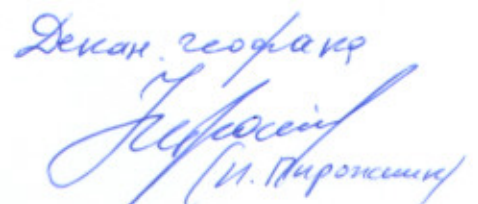 Декан. геофака
(И. Пирожник)